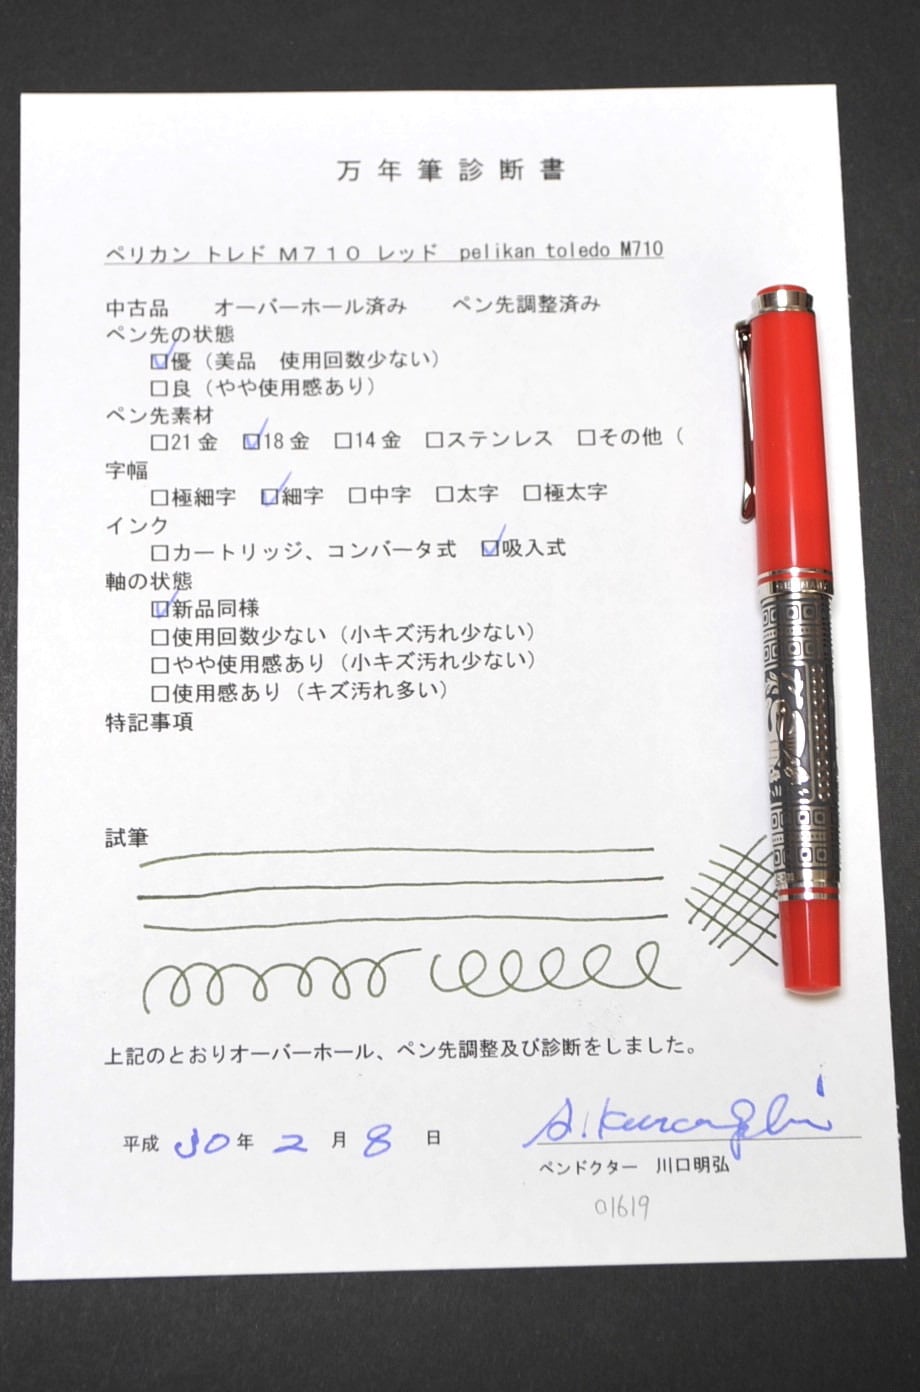 万年筆診断書
ペリカン トレド Ｍ７１０ レッド pelikan toledo M710
中古品　オーバーホール済み　ペン先調整済み
ペン先の状態
☑優（美品　使用回数少ない）
□良（やや使用感あり）
ペン先素材
□21金 ☑18金 □14金 □ステンレス □その他（
字幅
□極細字 ☑細字 □中字 □太字 □極太字
インク
□カートリッジ、コンバータ式 ☑吸入式
軸の状態
☑新品同様
□使用回数少ない（小キズ汚れ少ない）
□やや使用感あり（小キズ汚れ少ない）
□使用感あり（キズ汚れ多い）
特記事項
試筆
上記のとおりオーバーホール、ペン先調整及び診断をしました。
平成 30年 2 月 8 日
ペンドクター　川口明弘
01619